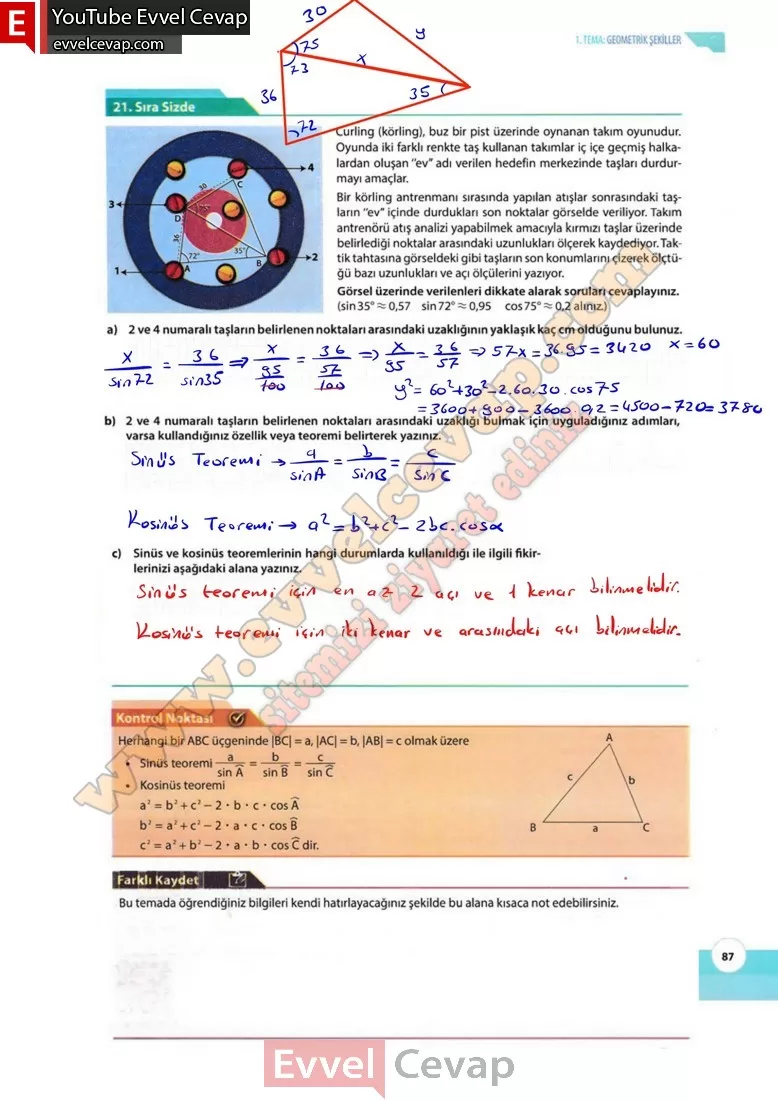 E YouTube Evvel Cevap
evvelcevap.com
1. TEMA: GEOMETRİK ŞEKİLLER
30
75
y
x
73
36
35
72
21. Sıra Sizde
Curling (körling), buz bir pist üzerinde oynanan takım oyunudur.
Oyunda iki farklı renkte taş kullanan takımlar iç içe geçmiş halka-
lardan oluşan "ev" adı verilen hedefin merkezinde taşları durdur-
mayı amaçlar.
Bir körling antrenmanı sırasında yapılan atışlar sonrasındaki taş-
ların "ev" içinde durdukları son noktalar görselde veriliyor. Takım
antrenörü atış analizi yapabilmek amacıyla kırmızı taşlar üzerinde
belirlediği noktalar arasındaki uzunlukları ölçerek kaydediyor. Tak-
tik tahtasına görseldeki gibi taşların son konumlarını çizerek ölçtü-
ğü bazı uzunlukları ve açı ölçülerini yazıyor.
Görsel üzerinde verilenleri dikkate alarak soruları cevaplayınız.
(sin35° ≈ 0,57 sin72° ≈ 0,95 cos75° ≈ 0,2 alınız.)
4
C
30
3
D
75°
36
72°
35°
B
2
1
A
a) 2 ve 4 numaralı taşların belirlenen noktaları arasındaki uzaklığının yaklaşık kaç cm olduğunu bulunuz.
x/sin72 = 36/sin35 ⇒ x/(95/100) = 36/(57/100) ⇒ x/95 = 36/57 ⇒ 57x = 36.95 = 3420 x = 60
y² = 60² + 30² - 2.60.30.cos75
= 3600 + 900 - 3600.0,2 = 4500 - 720 = 3780
b) 2 ve 4 numaralı taşların belirlenen noktaları arasındaki uzaklığı bulmak için uyguladığınız adımları,
varsa kullandığınız özellik veya teoremi belirterek yazınız.
Sinüs Teoremi → a/sinA = b/sinB = c/sinC
Kosinüs Teoremi → a² = b² + c² - 2bc.cosα
c) Sinüs ve kosinüs teoremlerinin hangi durumlarda kullanıldığı ile ilgili fikir-
lerinizi aşağıdaki alana yazınız.
Sinüs teoremi için en az 2 açı ve 1 kenar bilinmelidir.
Kosinüs teoremi için iki kenar ve arasındaki açı bilinmelidir.
www.evvelcevap.com
sitemizi ziyaret ediniz
Kontrol Noktası
Herhangi bir ABC üçgeninde |BC| = a, |AC| = b, |AB| = c olmak üzere
• Sinüs teoremi a/sin Â = b/sin B̂ = c/sin Ĉ
• Kosinüs teoremi
a² = b² + c² – 2 • b • c • cos Â
b² = a² + c² – 2 • a • c • cos B̂
c² = a² + b² – 2 • a • b • cos Ĉ dir.
A
c
b
B
a
C
Farklı Kaydet
Bu temada öğrendiğiniz bilgileri kendi hatırlayacağınız şekilde bu alana kısaca not edebilirsiniz.
87
Evvel Cevap